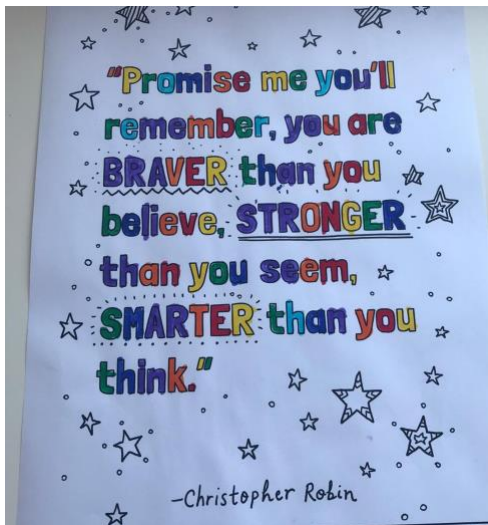 "Promise me you'll
remember, you are
BRAVER than you
believe, STRONGER
than you seem,
SMARTER than you
think."
-Christopher Robin